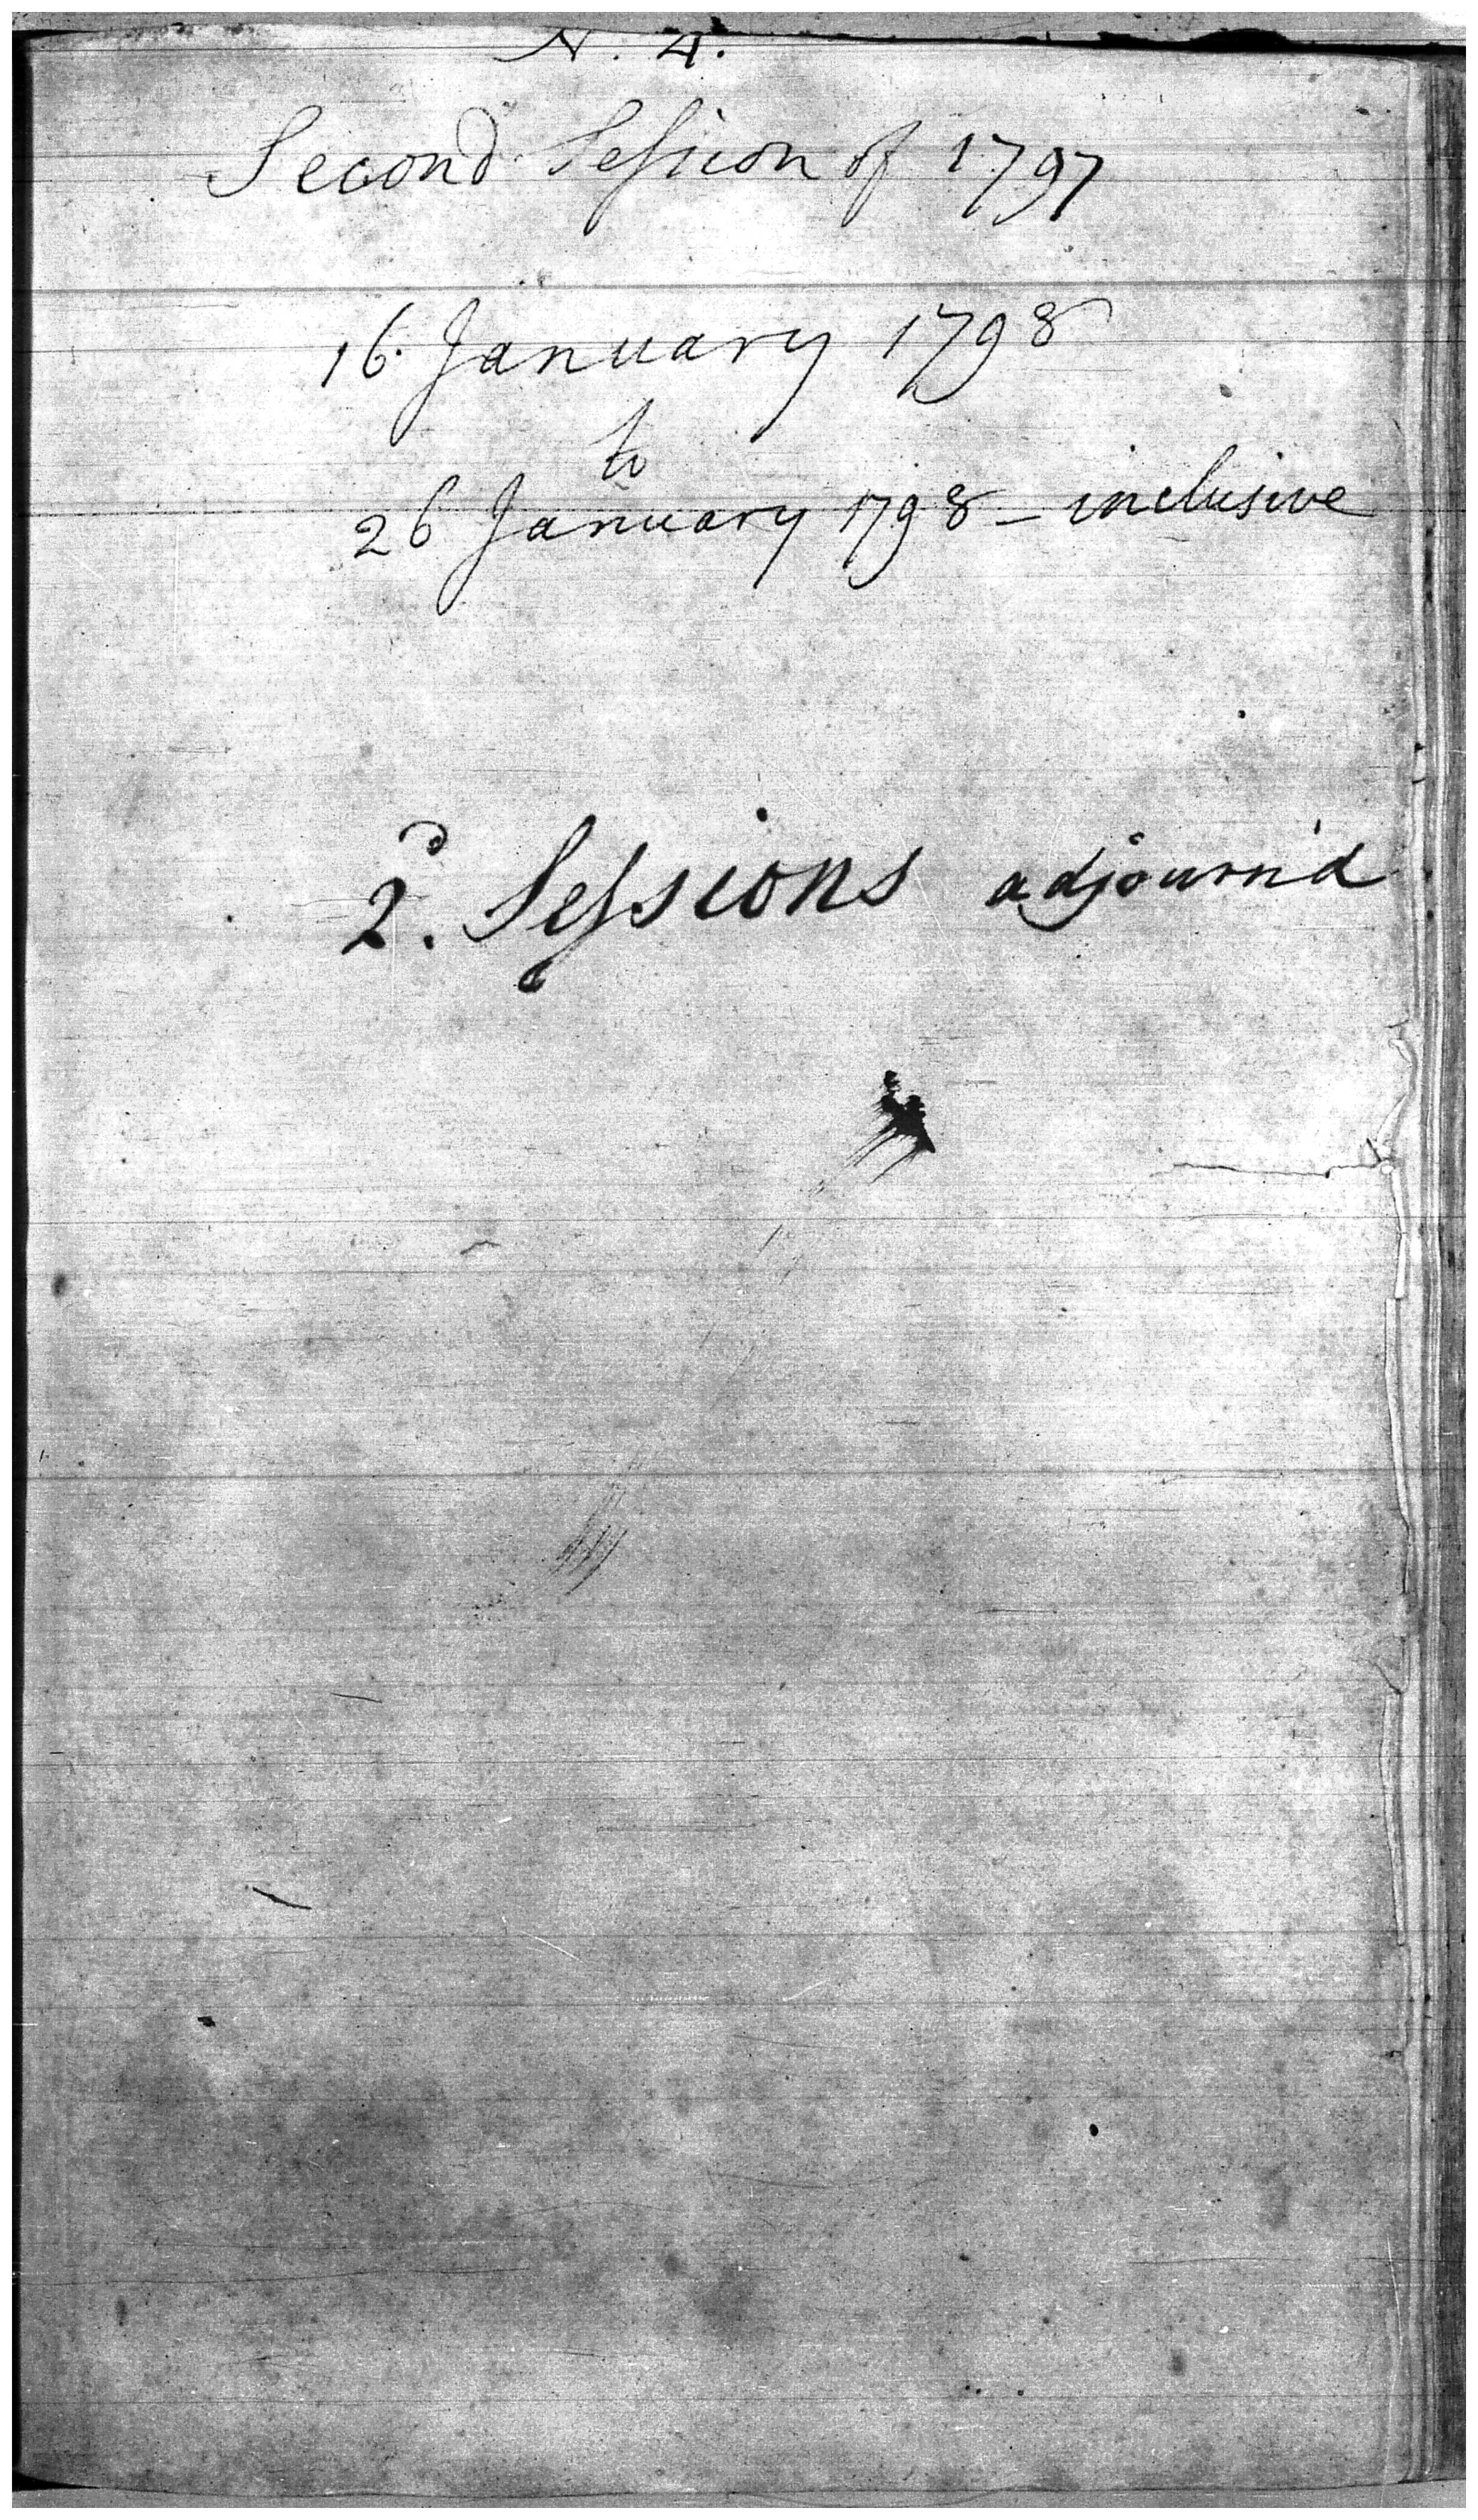 N. 4.
Second Session of 1797
16 January 1798
to
26 January 1798 - inclusive
2d. Sessions adjourn'd